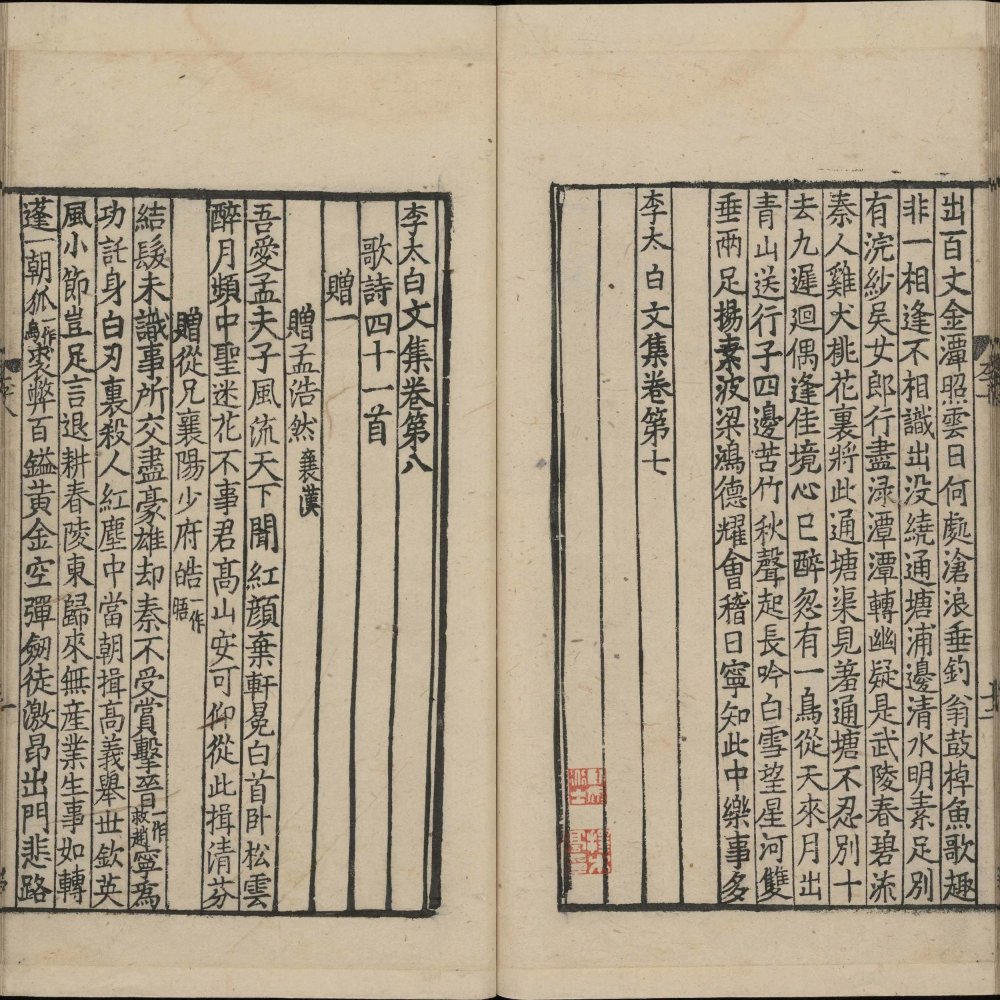 出百丈金潭照雲日何處滄浪垂釣翁鼓棹魚歌趣
非一相逢不相識出没繞通塘浦邊清水明素足別
有浣紗吳女郎行盡淥潭潭轉幽疑是武陵春碧流
秦人雞犬桃花裏將此通塘渠見羞通塘不忍別十
去九遲迴偶逢佳境心已醉忽有一鳥從天來月出
青山送行子四邊苦竹秋聲起長吟白雪望星河雙
垂兩足揚素波梁鴻德耀會稽日寧知此中樂事多
李太白文集卷第七
李太白文集卷第八
歌詩四十一首
贈一
贈孟浩然 襄漢
吾愛孟夫子風流天下聞紅顔棄軒冕白首卧松雲
醉月頻中聖迷花不事君高山安可仰從此揖清芬
贈從兄襄陽少府皓一作晧
結髮未識事所交盡豪雄却秦不受賞擊晉一作救趙寧爲
功託身白刃裏殺人紅塵中當朝揖高義舉世欽英
風小節豈足言退耕舂陵東歸來無産業生事如轉
蓬一朝狐一作烏裘弊百鎰黄金空彈劒徒激昂出門悲路